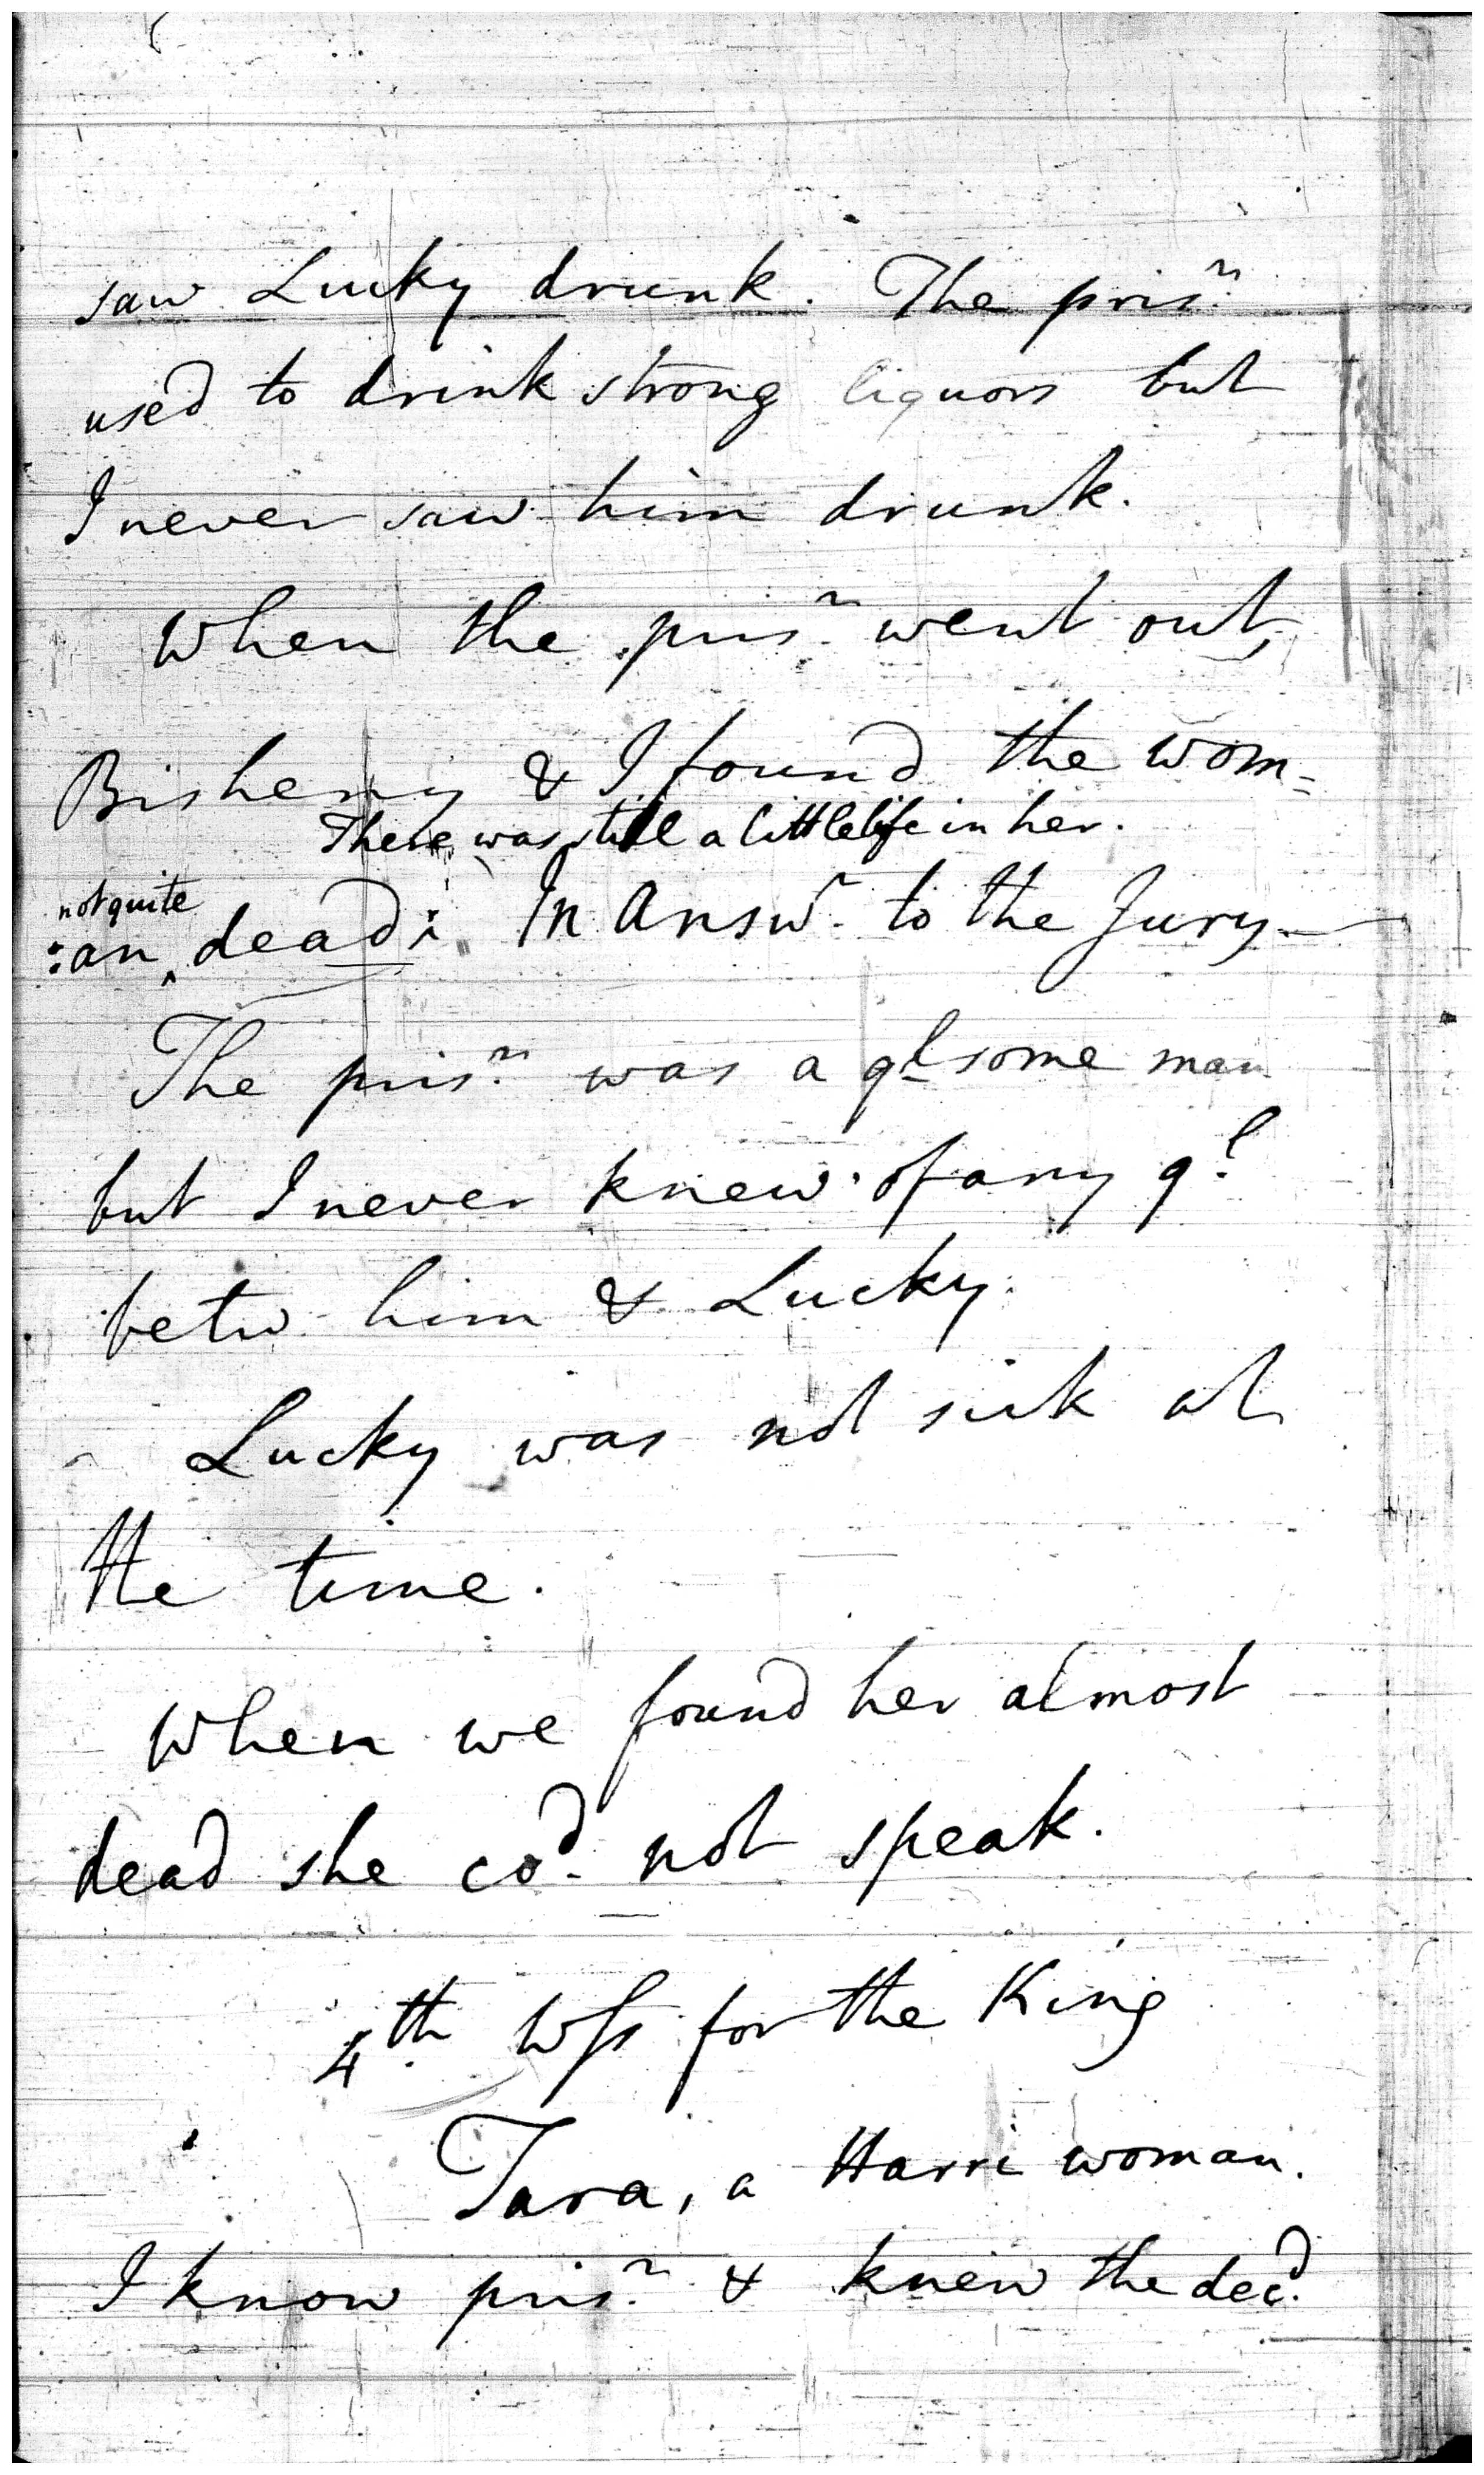 saw Lucky drunk. The prisn.
used to drink strong liquors but
I never saw him drunk.
When the prisn. went out,
& I found the wom=
There was still a little life in her.
not quite
:an ^ dead: In Answr. to the Jury.—
The prisn. was a qlsome man
but I never knew of any ql.
betw. him & Lucky.
Lucky was not sick at
the time.
When we found her almost
dead she cod. not speak.
4th. Wss for the King
Tara, a Harri woman.
I know prisn. & knew the decd.